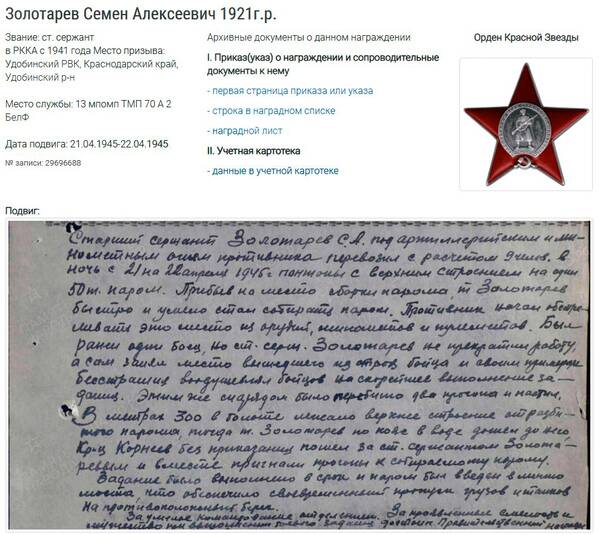 Золотарев Семен Алексеевич 1921г.р.
Звание: ст. сержант
в РККА с 1941 года Место призыва:
Удобинский РВК, Краснодарский край,
Удобинский р-н
Место службы: 13 мпомп ТМП 70 А 2
БелФ
Дата подвига: 21.04.1945-22.04.1945
№ записи: 29696688
Архивные документы о данном награждении
I. Приказ(указ) о награждении и сопроводительные
документы к нему
- первая страница приказа или указа
- строка в наградном списке
- наградной лист
II. Учетная картотека
- данные в учетной картотеке
Орден Красной Звезды
Подвиг:
Старший сержант Золотарев С.А. под артиллерийским и ми-
нометным огнем противника перевозил с расчетом 9 чел. в
ночь с 21 на 22 апреля 1945 г понтоны с верхним строением на один
50 т. паром. Прибыв на место сборки парома, т. Золотарев
быстро и умело стал собирать паром. Противник начал обстре-
ливать это место из орудий, минометов и пулеметов. Был
ранен один боец, но ст. серж. Золотарев не прекратил работу,
а сам занял место вышедшего из строя бойца и своим примером
бесстрашия воодушевлял бойцов на скорейшее выполнение за-
дания. Этим же снарядом было перебито два прогона и настил.
В метрах 300 в болоте лежало верхнее строение
парома, тогда т. Золотарев по в воде дошел до него,
Кр-ц Корнеев без приказания пошел за ст. сержантом Золота-
ревым и вместе пригнали прогоны к собираемому парому.
Задание было выполнено в срок и паром был введен в линию
моста, что обеспечило своевременный пропуск грузов и танков
на противоположный берег.
За умелое командование отделением. За проявленные смелость и
мужество при выполнении боевого задания достоин Правительственной награды